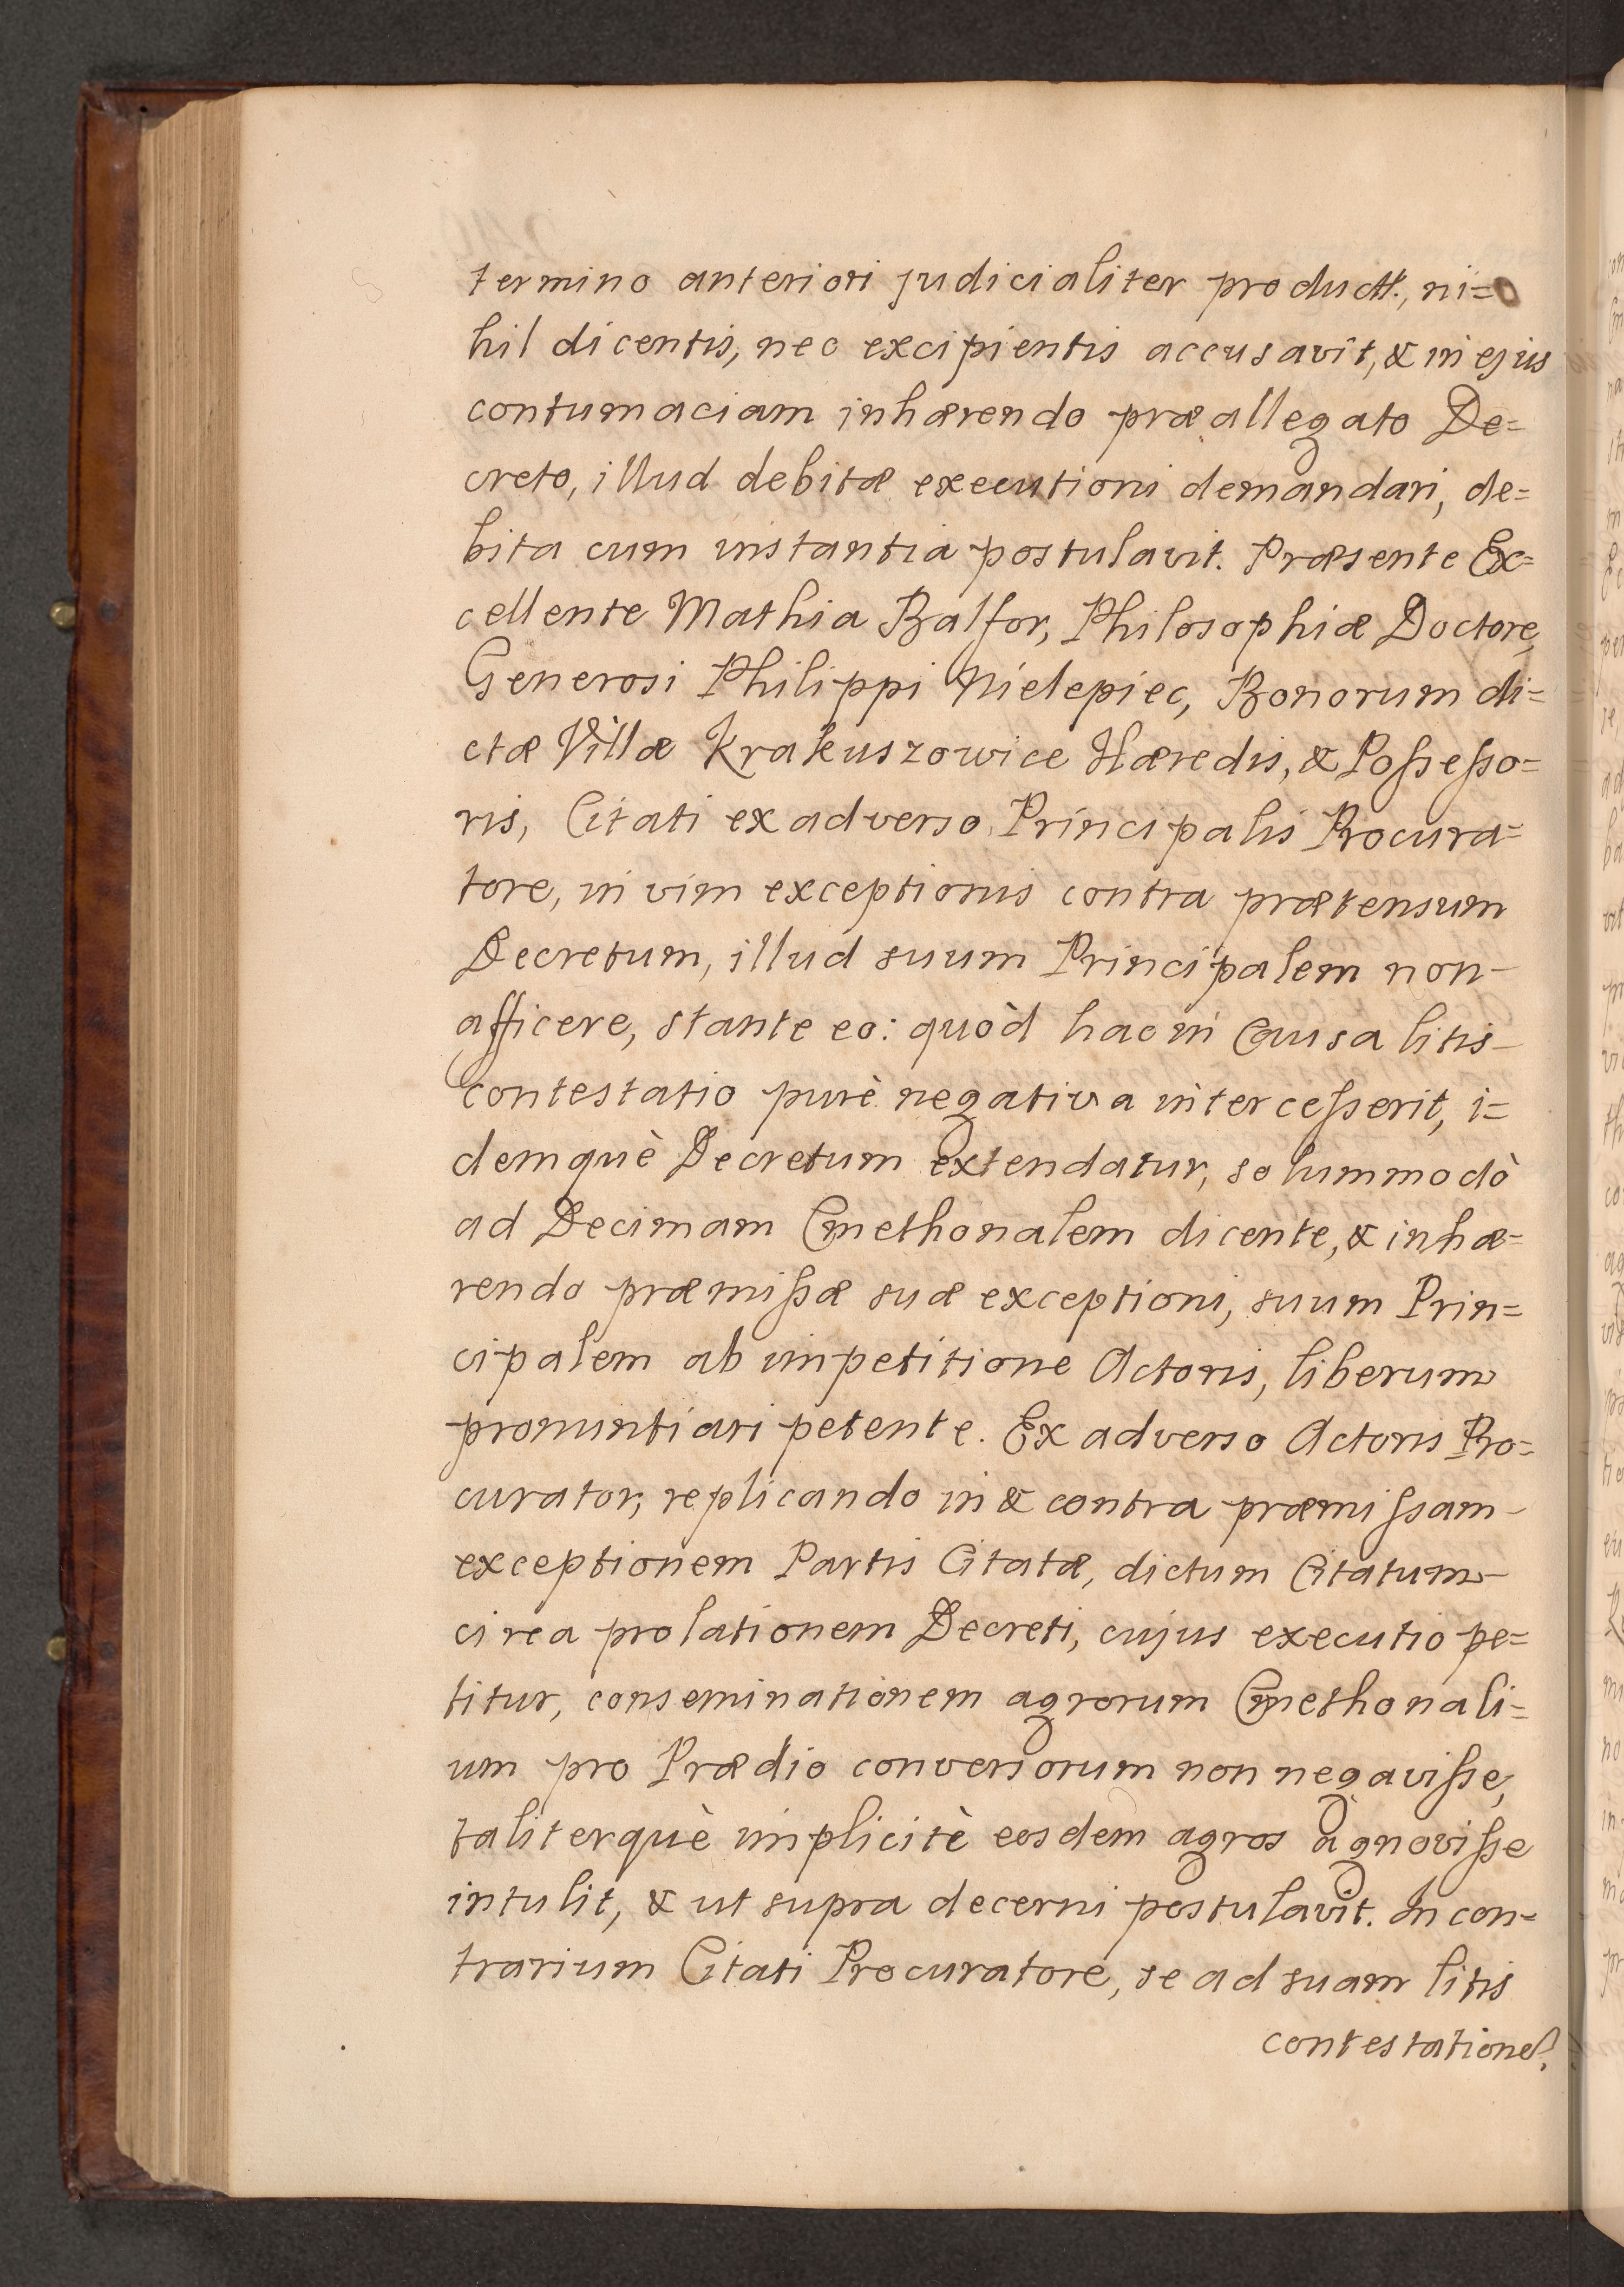 termino anteriori judicialiter productt., ni=
hil dicentis, nec excipientis accusavit, & in ejus
contumaciam inhærendo præallegato De=
creto, illud debitæ executioni demandari, de=
bita cum instantia postulavit. Præsente Ex=
cellente Mathia Balfor, Philosophiæ Doctore,
Generosi Philippi Nielepiec, Bonorum di=
ctæ Villæ Krakuszowice Hæredis, & Possesso=
ris, Citati ex adverso Principalis Procura=
tore, in vim exceptionis contra prætensum
Decretum, illud suum Principalem non-
afficere, stante eo: quòd hac in Causa litis-
contestatio purè negativa intercesserit, i=
demquè Decretum extendatur, solummodò
ad Decimam Cmethonalem dicente, & inhæ=
rendo præmissæ suæ exceptioni, suum Prin=
cipalem ab impetitione Actoris, liberum
pronuntiari petente. Ex adverso Actoris Pro=
curator, replicando in & contra præmissam-
exceptionem Partis Citatæ, dictum Citatum-
circa prolationem Decreti, cujus executio pe=
titur, conseminationem agrorum Cmethonali=
um pro Prædio conversorum non negavisse,
taliterquè implicitè eosdem agros agnovisse
intulit, & ut supra decerni postulavit. In con=
trarium Citati Procuratore, se ad suam litis
contestatione